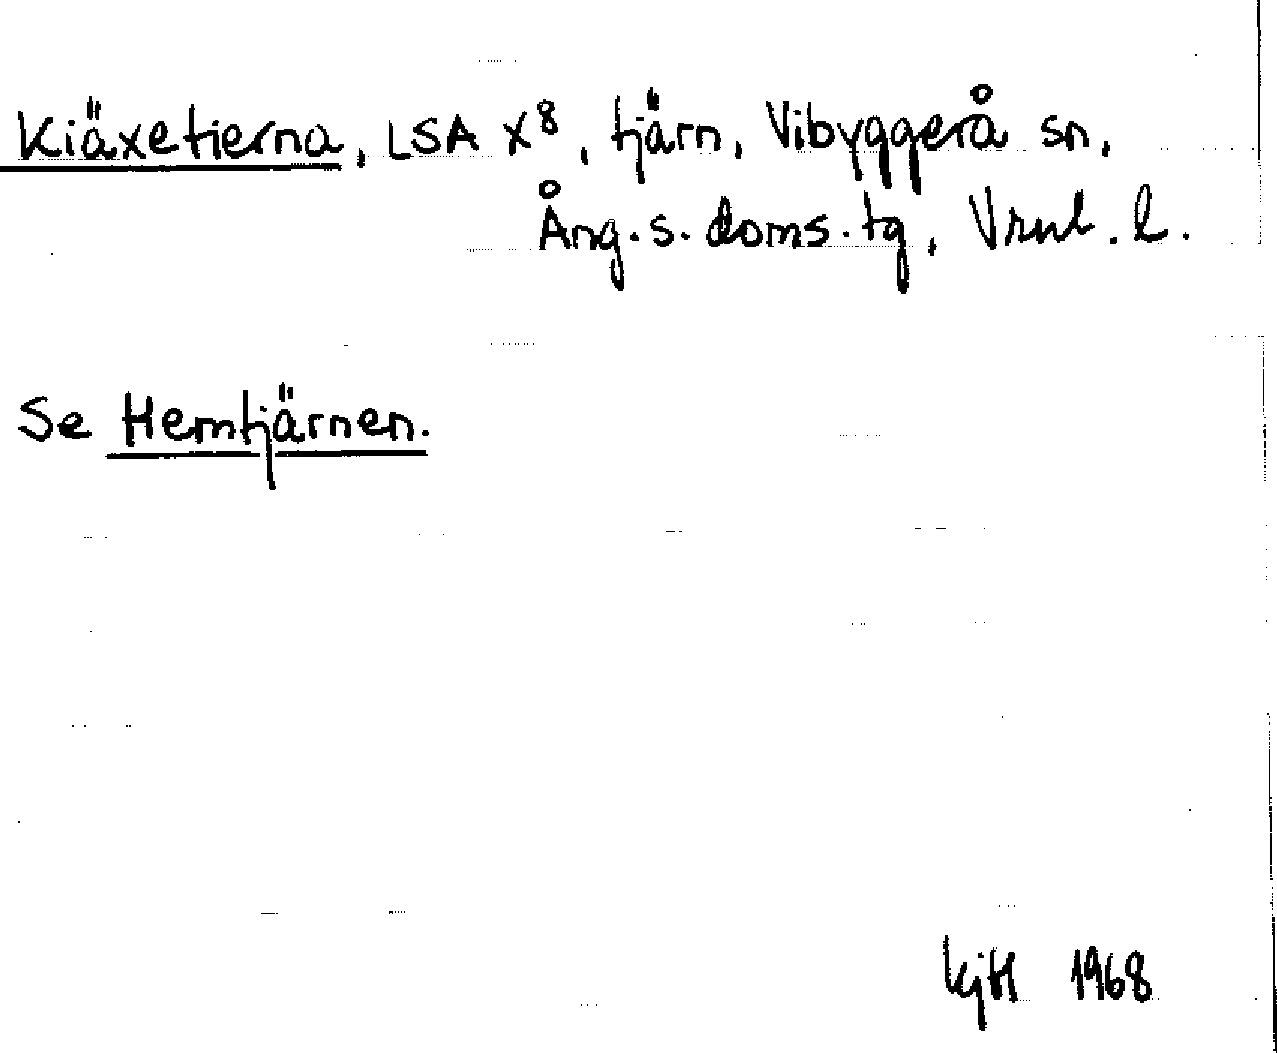 Kiäxetierna, LSA X8, tjärn, Vibyggerå sn,
Ång.s.doms.tg, Vrnl.l.
Se Hemtjärnen.
KjH 1968